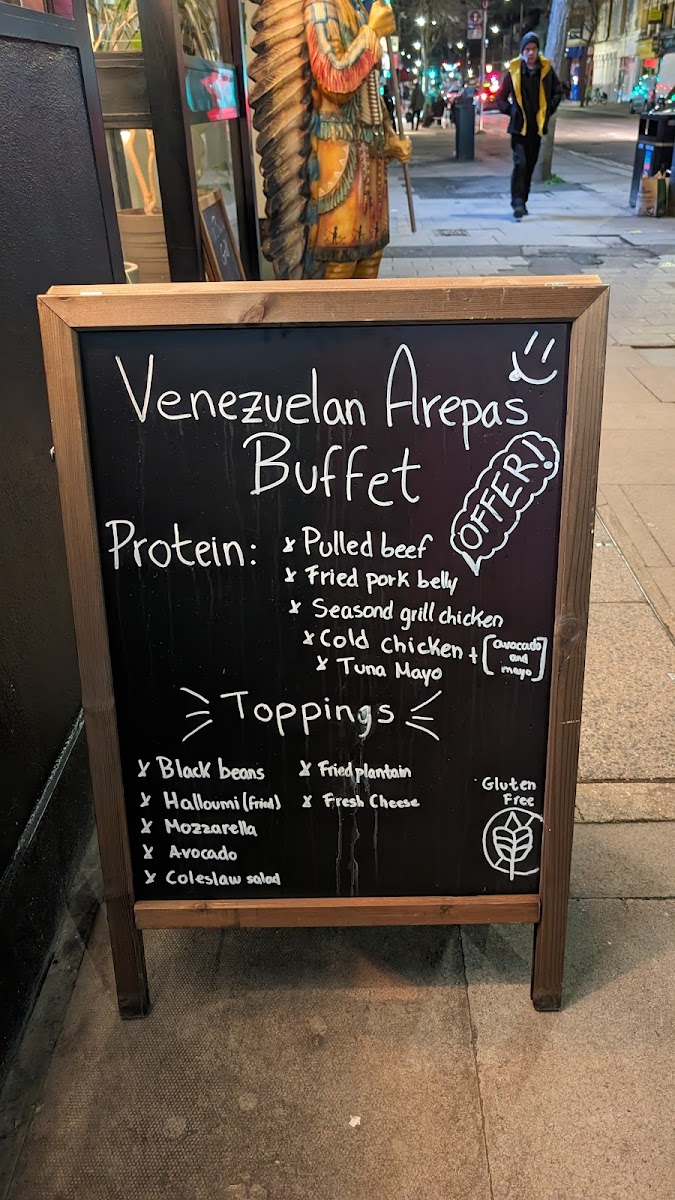 Venezuelan Arepas
Buffet
OFFER!
Protein:
x Pulled beef
x Fried pork belly
x Seasond grill chicken
x Cold chicken + [avocado
and
mayo]
x Tuna Mayo
Toppings
x Black beans
x Halloumi (fried)
x Mozzarella
x Avocado
x Coleslaw salad
x Fried plantain
x Fresh Cheese
Gluten
Free